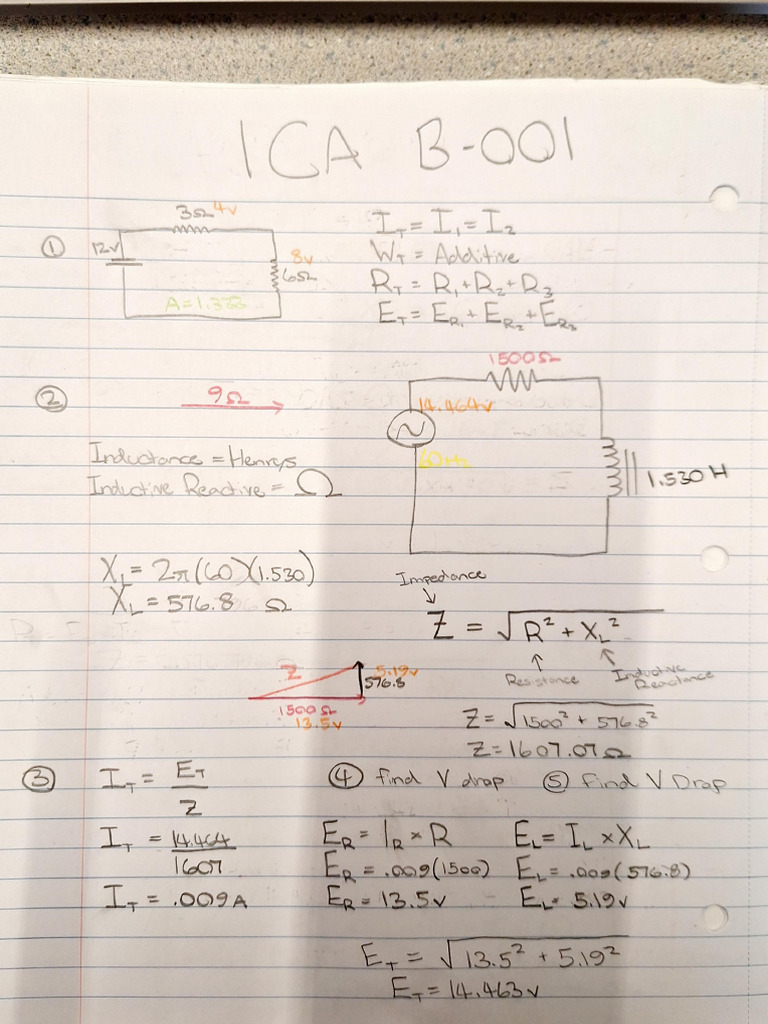 ICA B-001
①
12v
3Ω 4v
8v
6Ω
A=1.333
I_T = I_1 = I_2
W_T = Additive
R_T = R_1 + R_2 + R_3
E_T = E_R1 + E_R2 + E_R3
②
9Ω
Inductance = Henrys
Inductive Reactive = Ω
1500Ω
14.464v
60Hz
1.530 H
X_L = 2π(60)(1.530)
X_L = 576.8 Ω
Impedance
Z = √R² + X_L²
Resistance
Inductive Reactance
Z
5.19v
576.8
1500Ω
13.5v
Z = √1500² + 576.8²
Z = 1607.07Ω
③ I_T = E_T / Z
I_T = 14.464 / 1607
I_T = .009A
④ find V drop
E_R = I_R × R
E_R = .009(1500)
E_R = 13.5v
⑤ Find V Drop
E_L = I_L × X_L
E_L = .009(576.8)
E_L = 5.19v
E_T = √13.5² + 5.19²
E_T = 14.463v